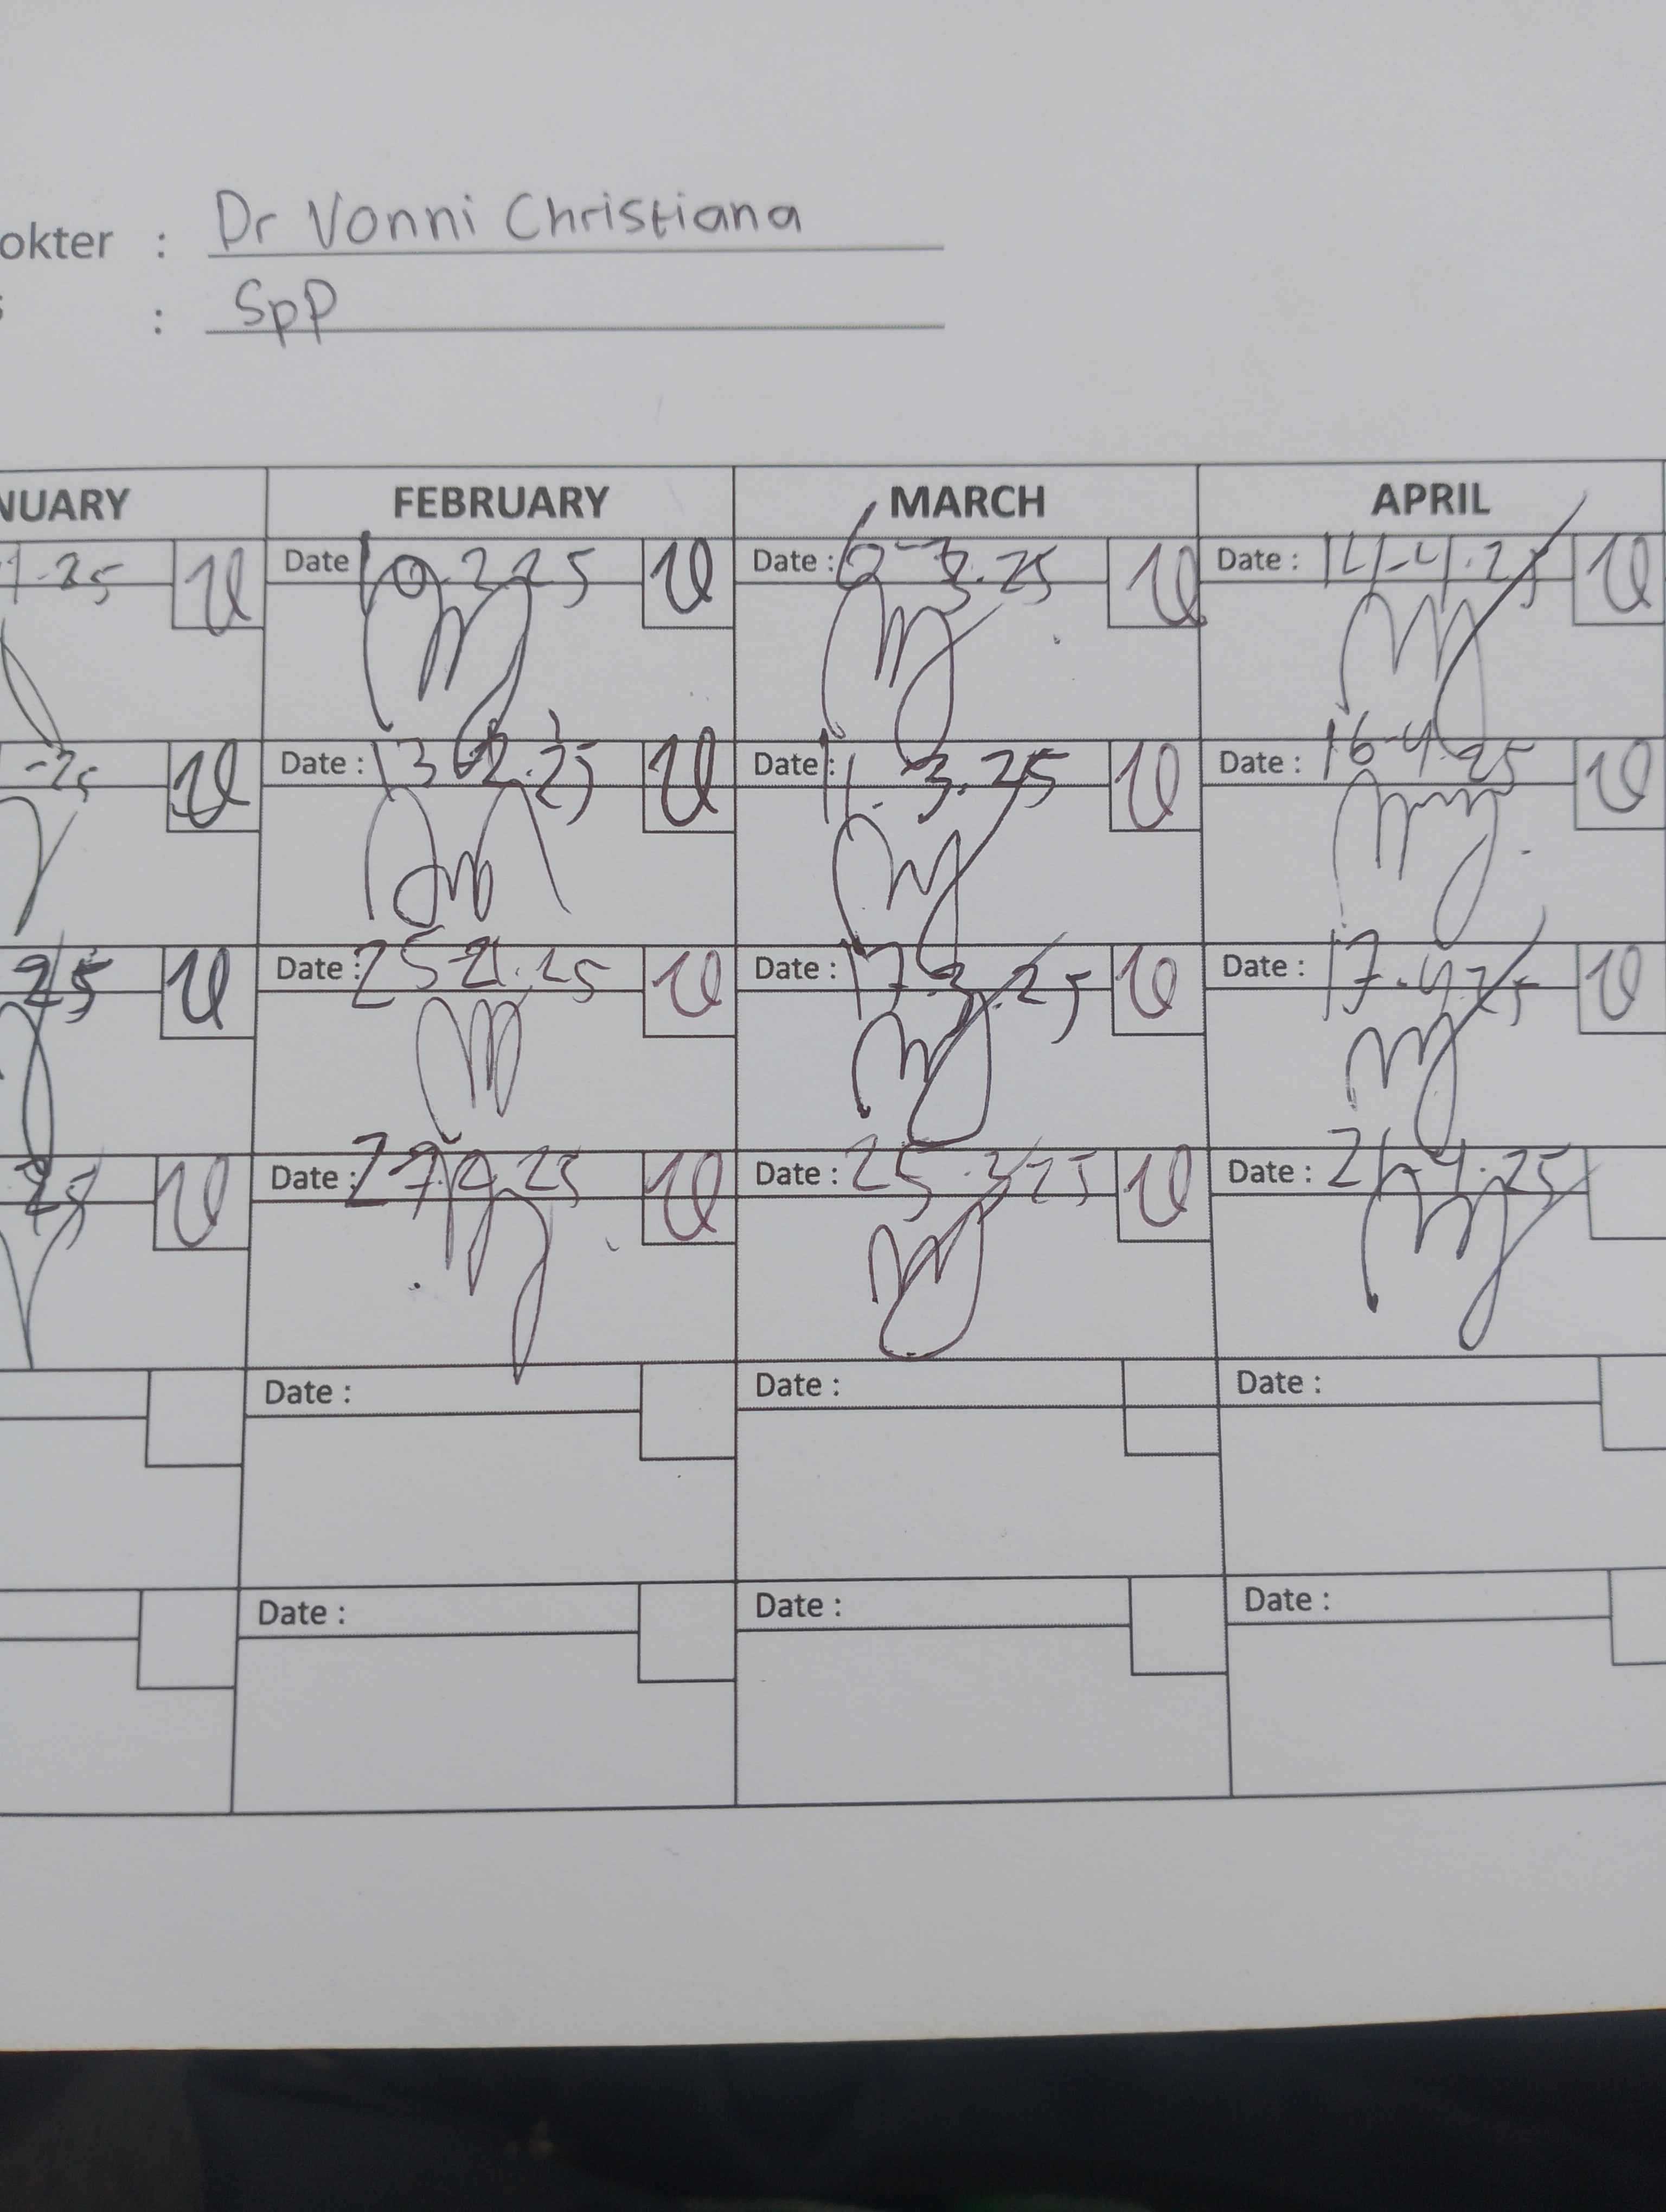 okter : Dr Vonni Christiana
: SpP
NUARY FEBRUARY MARCH APRIL
1-25 Date 10.2.25 Date : 6-3.25 Date : 14-4.25
-25 Date : 13-2.25 Date : 11.3.25 Date : 16-4.25
25 Date : 25-2.25 Date : 17.3.25 Date : 17.4.25
25 Date : 27.2.25 Date : 25.3.25 Date : 21-4.25
Date : Date : Date :
Date : Date : Date :